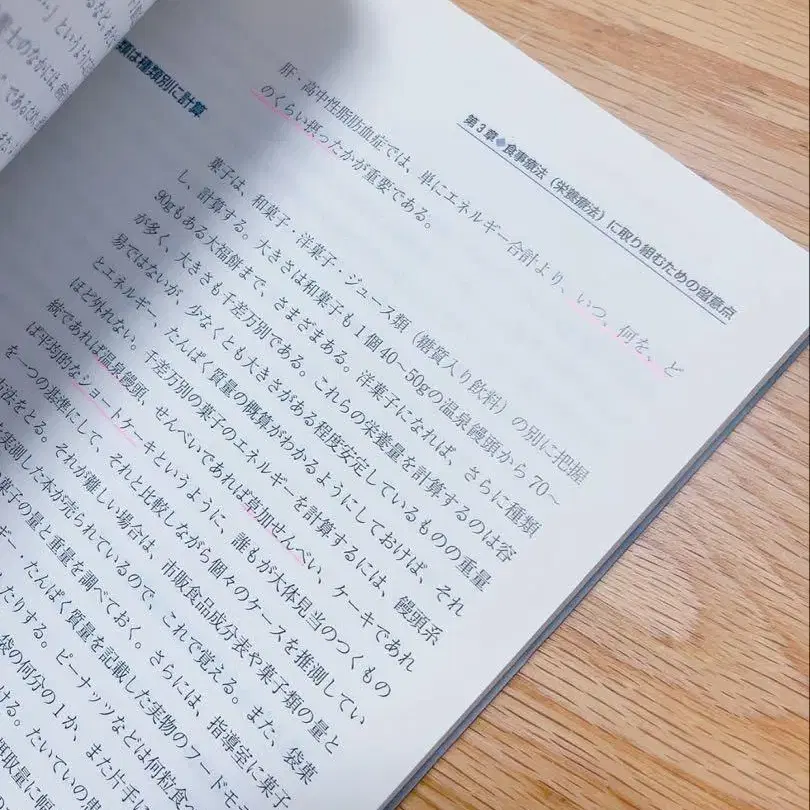 第3章◆食事療法（栄養療法）に取り組むための留意点
肝・高中性脂肪血症では、単にエネルギー合計より、いつ、何を、ど
のくらい摂ったかが重要である。
類は種類別に計算
菓子は、和菓子・洋菓子・ジュース類（糖質入り飲料）の別に把握
し、計算する。大きさは和菓子も1個40〜50gの温泉饅頭から70〜
90gもある大福餅まで、さまざまある。洋菓子になれば、さらに種類
が多く、大きさも千差万別である。これらの栄養量を計算するのは容
易ではないが、少なくとも大きさがある程度安定しているものの重量
とエネルギー、たんぱく質量の概算がわかるようにしておけば、それ
ほど外れない。千差万別の菓子のエネルギーを計算するには、饅頭系
統であれば温泉饅頭、せんべいであれば草加せんべい、ケーキであれ
ば平均的なショートケーキというように、誰もが大体見当のつくもの
を一つの基準にして、それと比較しながら個々のケースを推測してい
方法をとる。それが難しい場合は、市販食品成分表や菓子類の量と
実測した本が売られているので、これで覚える。また、袋菓
菓子の量と重量を調べておく。さらには、指導室に菓子
ギー・たんぱく質量を記載した実物のフードモデ
たりする。ピーナッツなどは何粒食べ
袋の何分の1か、また片手に
ける。たいていの患
取量に幅